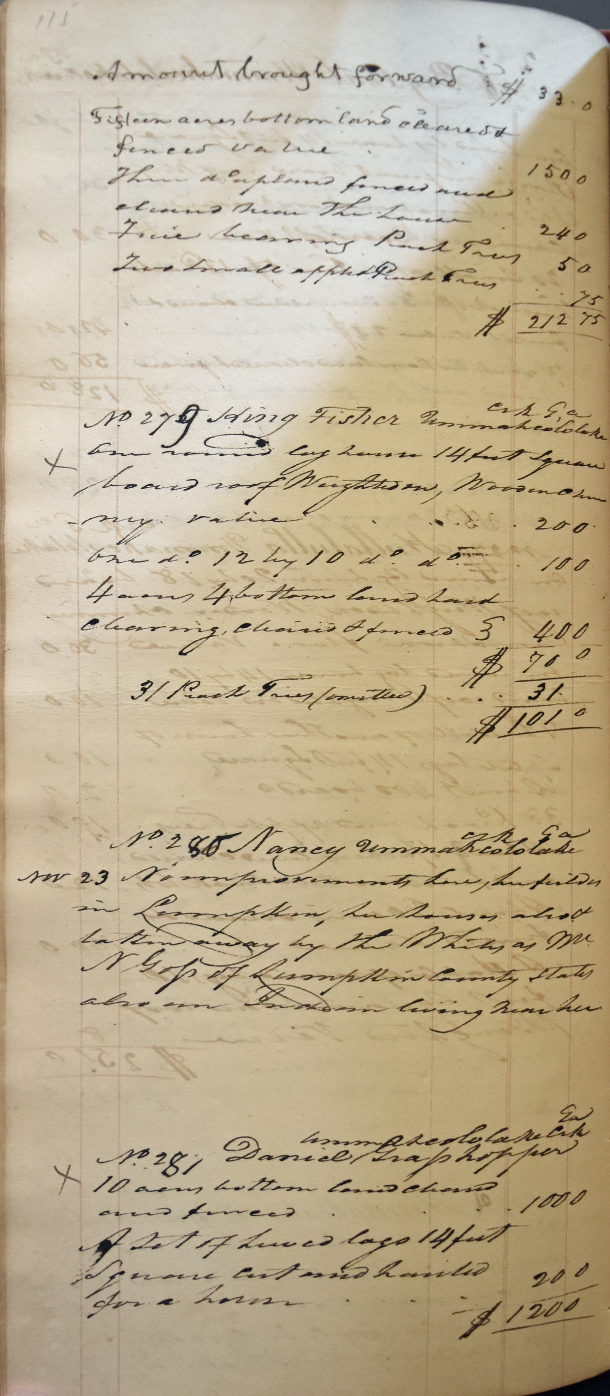 115
Amount brought forward $ 33.0
Fifteen acres bottom land cleared &
fenced value . 1500
Three do upland fenced and
cleared near the house 240
Five bearing Peach Trees 50
Two small apple & Peach Trees . . 75
$ 212 75
No 279 King Fisher Ummahcololake crk Ga
X One round log house 14 feet square
board roof Weighted on, Wooden Chim
ny. value . . . . 200
One do. 12 by 10 do. do. . 100
4 acres bottom land hard
clearing, cleared & fenced } 400
$ 70 0
31 Peach Trees (omitted) . . . . 31.
$ 101 0
No. 280 Nancy Ummahcololake crk Ga
Nov 23 No improvements here, her fields
in Lumpkin, her houses also &
taken away by the Whites as Mr
N Goss of Lumpkin County States
also an Indian living near her
No. 281 Daniel Grasshopper Ummahcololake Crk Ga
X 10 acres bottom land cleared
and fenced . . . 1000
A Set of hewed logs 14 feet
Square cut and hauled
for a house . . . 200
$ 1200